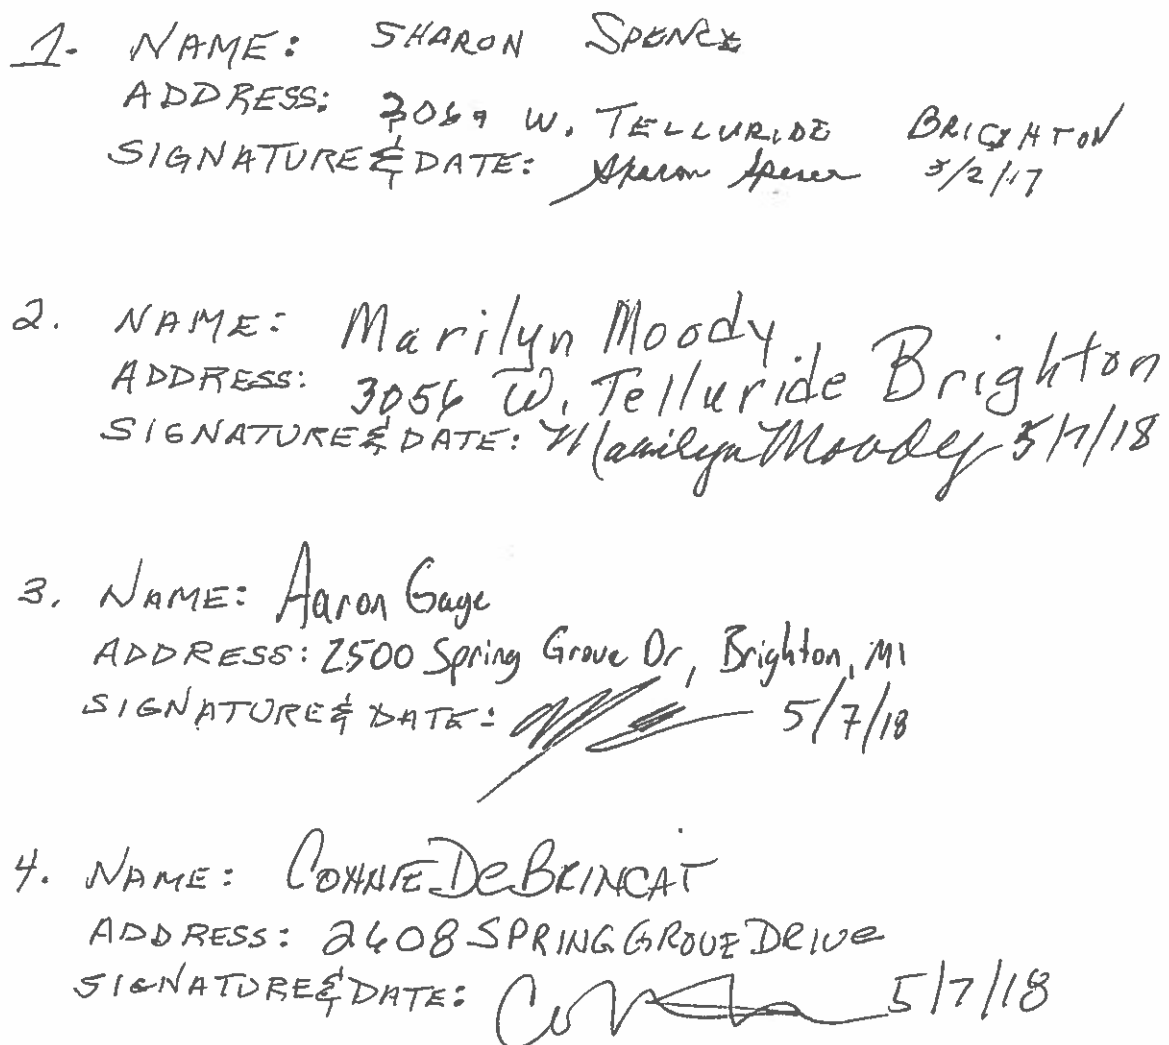 1. NAME: SHARON SPENCE
ADDRESS: 3069 W. TELLURIDE BRIGHTON
SIGNATURE & DATE: Sharon Spence 5/2/17
2. NAME: Marilyn Moody
ADDRESS: 3056 W. Telluride Brighton
SIGNATURE & DATE: Marilyn Moody 5/7/18
3. NAME: Aaron Gage
ADDRESS: 2500 Spring Grove Dr, Brighton, MI
SIGNATURE & DATE: 5/7/18
4. NAME: CONNIE DeBRINCAT
ADDRESS: 2608 SPRING GROVE DRIVe
SIGNATURE & DATE: 5/7/18